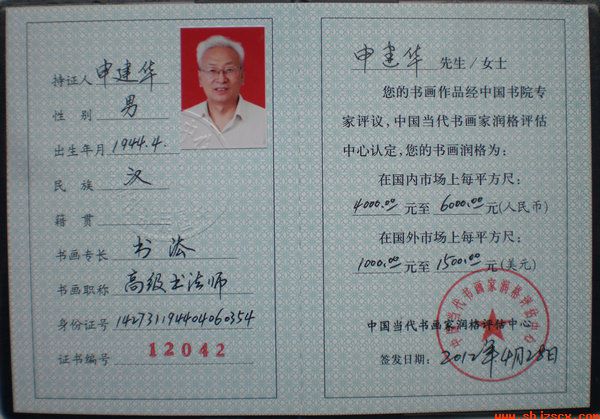 持证人 申建华
性 别 男
出生年月 1944.4.
民 族 汉
籍 贯
书画专长 书法
书画职称 高级书法师
身份证号 142731194404060354
证书编号 12042
申建华 先生/女士
您的书画作品经中国书院专
家评议，中国当代书画家润格评估
中心认定，您的书画润格为：
在国内市场上每平方尺：
4000.00 元至 6000.00 元(人民币)
在国外市场上每平方尺：
1000.00 元至 1500.00 元(美元)
中国当代书画家润格评估中心
中国当代书画家润格评估中心
签发日期：2012年4月28日
www.sbjzscx.com